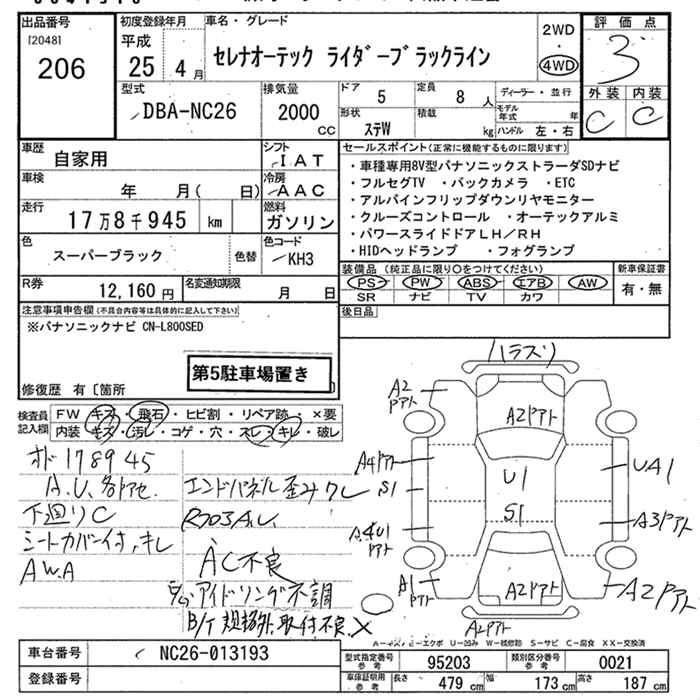 出品番号
[2048]
206
初度登録年月
平成
25 4 月
車名・グレード
セレナオーテック ライダーブラックライン
2WD
4WD
評価点
3
外装 内装
C C
型式
DBA-NC26
排気量
2000
CC
ドア 5
定員 8 人
ディーラー・並行
モデル年式 年
形状 ステW
積載 kg
ハンドル 左・右
車歴
自家用
シフト
IAT
車検
年 月( 日)
冷房
AAC
走行
17万8千945 km
燃料
ガソリン
色
スーパーブラック
色替
色コード
KH3
R券
12,160 円
名変通知期限
月 日
セールスポイント(正常に機能するものに限ります)
・車種専用8V型パナソニックストラーダSDナビ
・フルセグTV ・バックカメラ ・ETC
・アルパインフリップダウンリヤモニター
・クルーズコントロール ・オーテックアルミ
・パワースライドドアLH/RH
・HIDヘッドランプ ・フォグランプ
装備品 (純正品に限り○をつけてください)
PS PW ABS エアB AW
SR ナビ TV カワ
新車保証書
有・無
後日品
注意事項申告欄(不具合内容等は具体的に記入して下さい)
※パナソニックナビ CN-L800SED
第5駐車場置き
修復歴 有〔箇所
検査員
記入欄
FW キズ・飛石・ヒビ割・リペア跡・×要
内装 キズ・汚レ・コゲ・穴・スレ・キレ・破レ
オド178945
A.U.各トアセ
下廻りC
シートカバー付,キレ
AW.A
エンドパネル歪みクレ
AC不良
アイドリング不調
B/T 規格外,取付不良 X
ハラスリ
A2 アト
A2アト
A4アト
S1
U1
S1
A4U1
アト
A1
アト
UA1
A3アト
A2アト
A2アト
A2アト
車台番号
NC26-013193
登録番号
A-キズ E-エクボ U-凹み W-補修跡 S-サビ C-腐食 XX-交換済
型式指定番号
参考
95203
類別区分番号
参考
0021
車庫証明用
参考
長さ 479 cm 幅 173 cm 高さ 187 cm